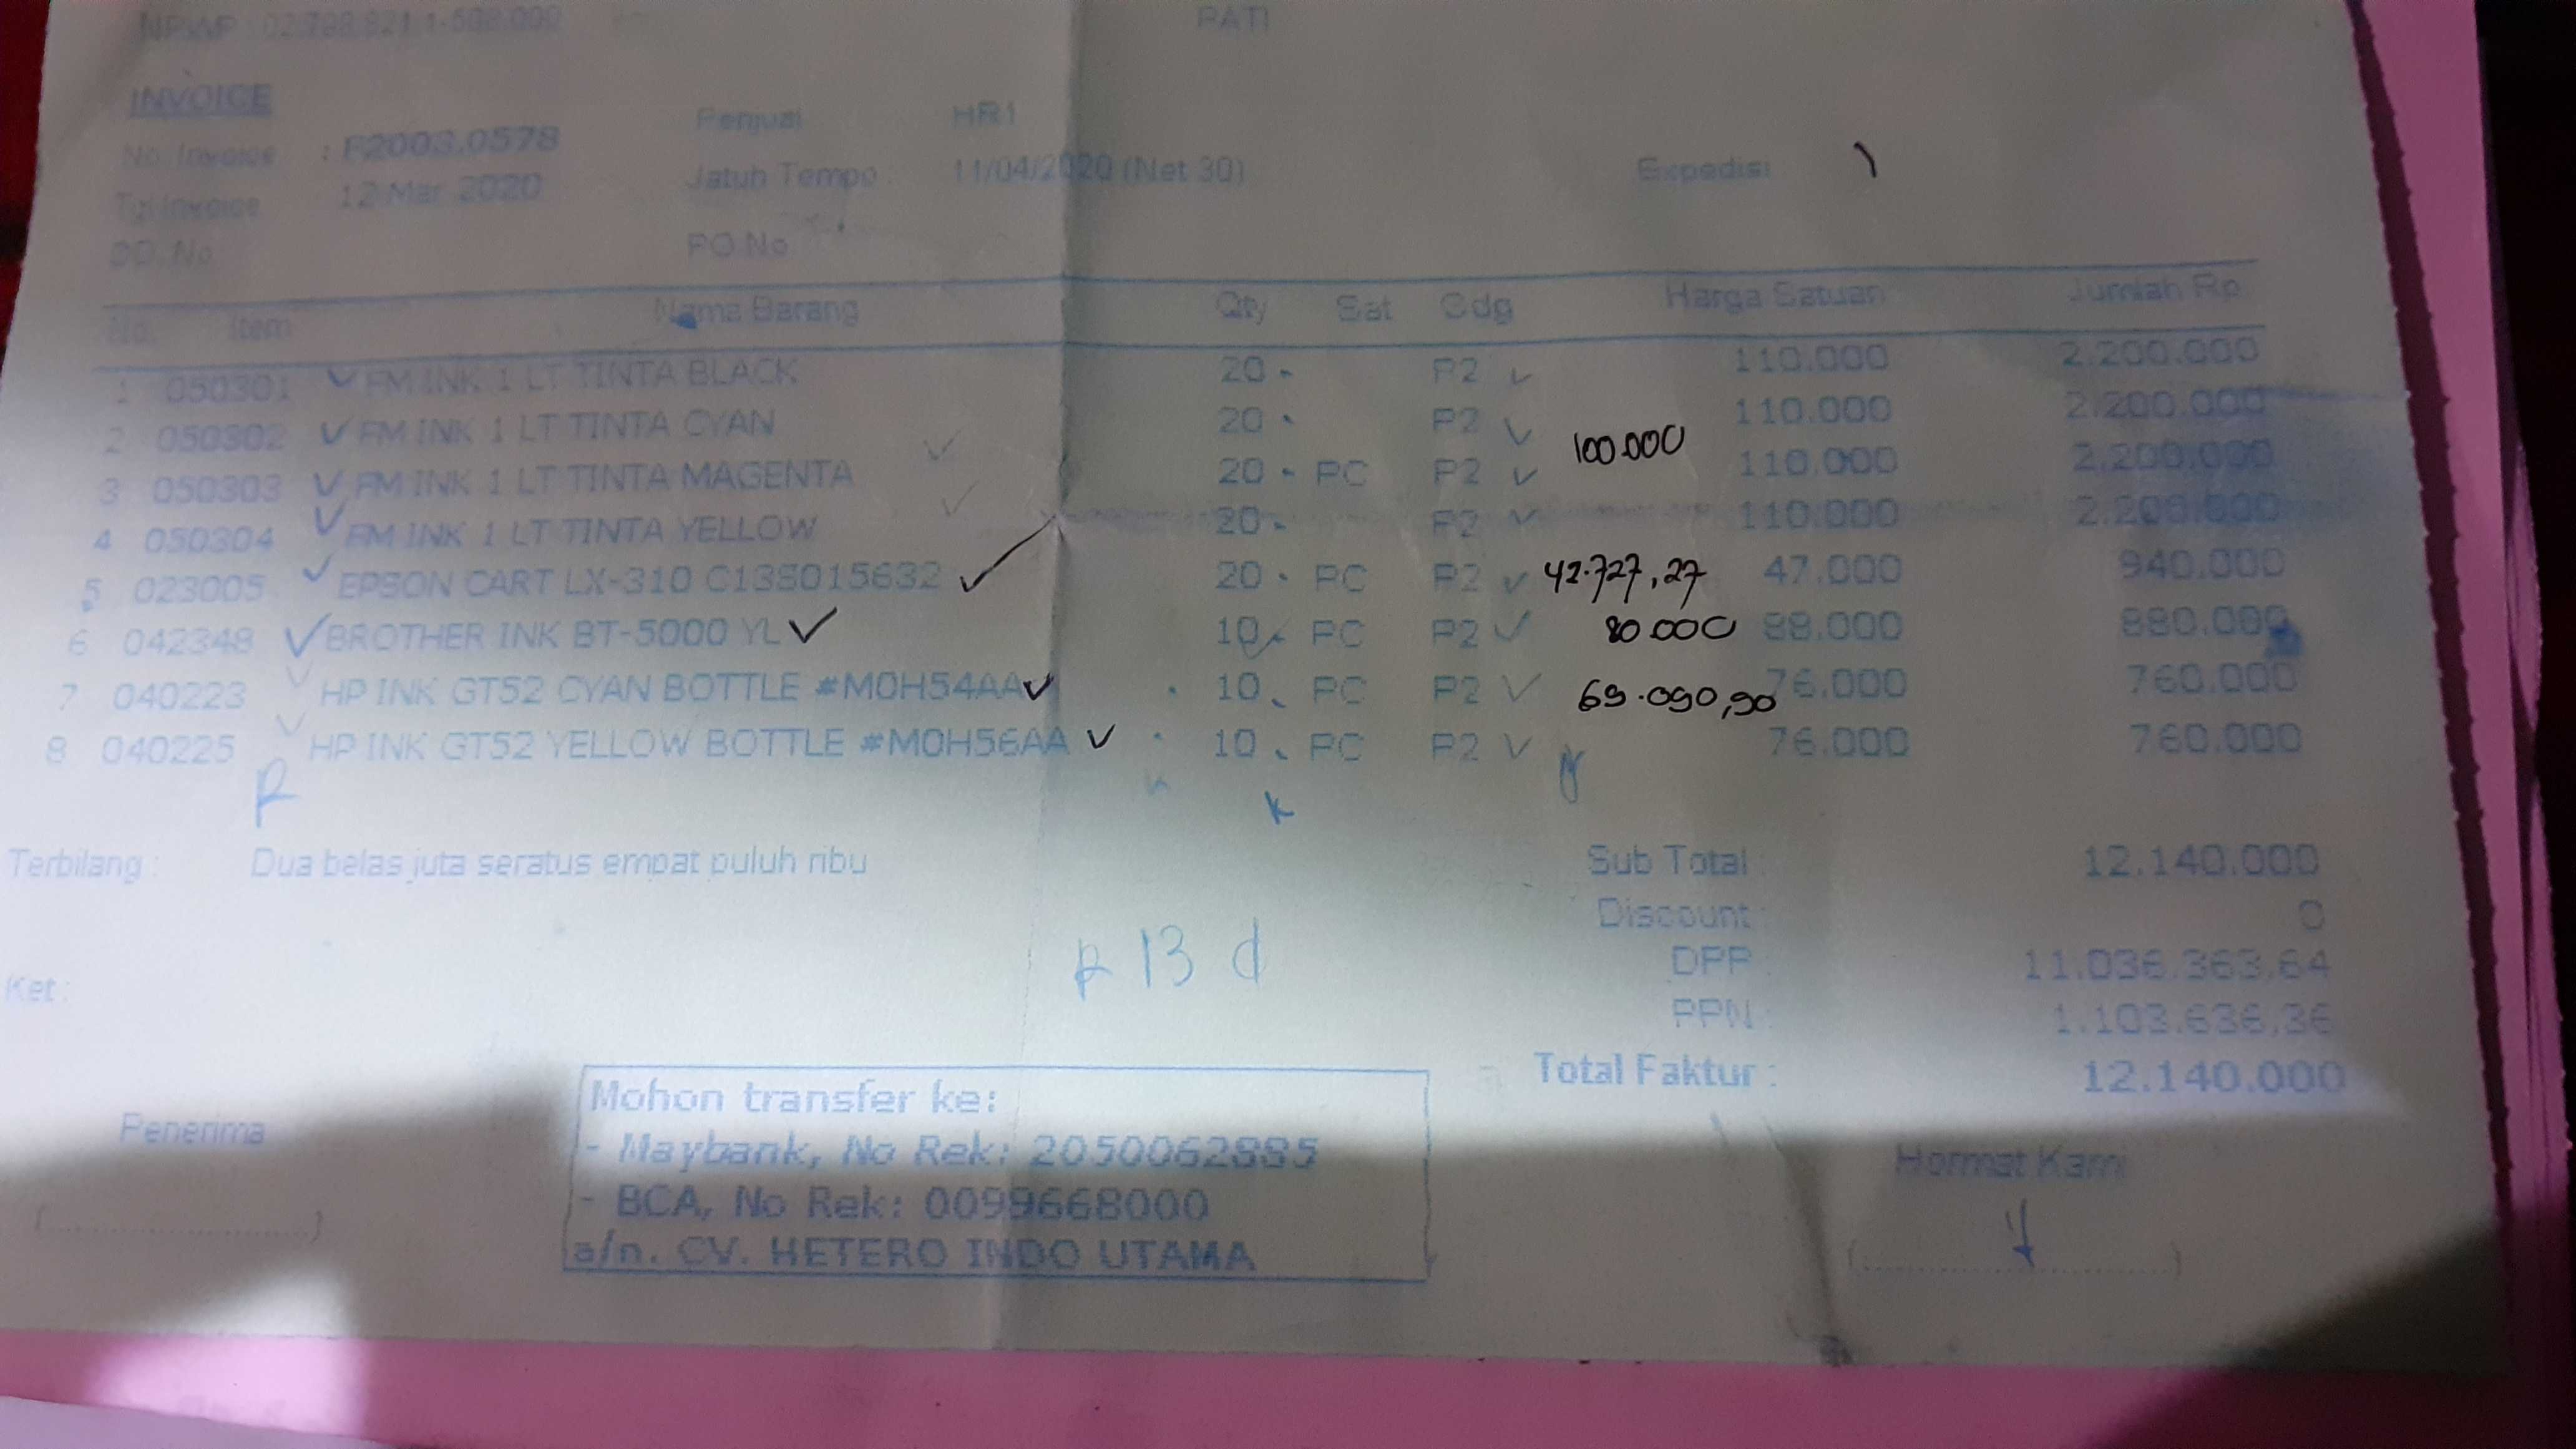 NPWP : 02.798.821.1-508.000 PATI
INVOICE
No. Invoice : F2003.0578 Penjual HR1
Tgl Invoice 12 Mar 2020 Jatuh Tempo : 11/04/2020 (Net 30) Expedisi
PO.No
No. Item Nama Barang Qty Sat Gdg Harga Satuan Jumlah Rp
1 050301 FM INK 1 LT TINTA BLACK 20 P2 110.000 2.200.000
2 050302 FM INK 1 LT TINTA CYAN 20 P2 110.000 2.200.000
100.000
3 050303 FM INK 1 LT TINTA MAGENTA 20 PC P2 110.000 2.200.000
4 050304 FM INK 1 LT TINTA YELLOW 20 P2 110.000 2.200.000
5 023005 EPSON CART LX-310 C13S015632 20 PC P2 42.727,27 47.000 940.000
6 042348 BROTHER INK BT-5000 YL 10 PC P2 80.000 88.000 880.000
7 040223 HP INK GT52 CYAN BOTTLE #M0H54AA 10 PC P2 69.090,90 76.000 760.000
8 040225 HP INK GT52 YELLOW BOTTLE #M0H56AA 10 PC P2 76.000 760.000
Terbilang : Dua belas juta seratus empat puluh ribu Sub Total : 12.140.000
Discount : 0
13 d
DPP : 11.036.363,64
Ket :
PPN : 1.103.636,36
Total Faktur : 12.140.000
Mohon transfer ke:
- Maybank, No Rek: 2050062885
- BCA, No Rek: 0099668000
a/n. CV. HETERO INDO UTAMA
Penerima Hormat Kami
(....................) (....................)